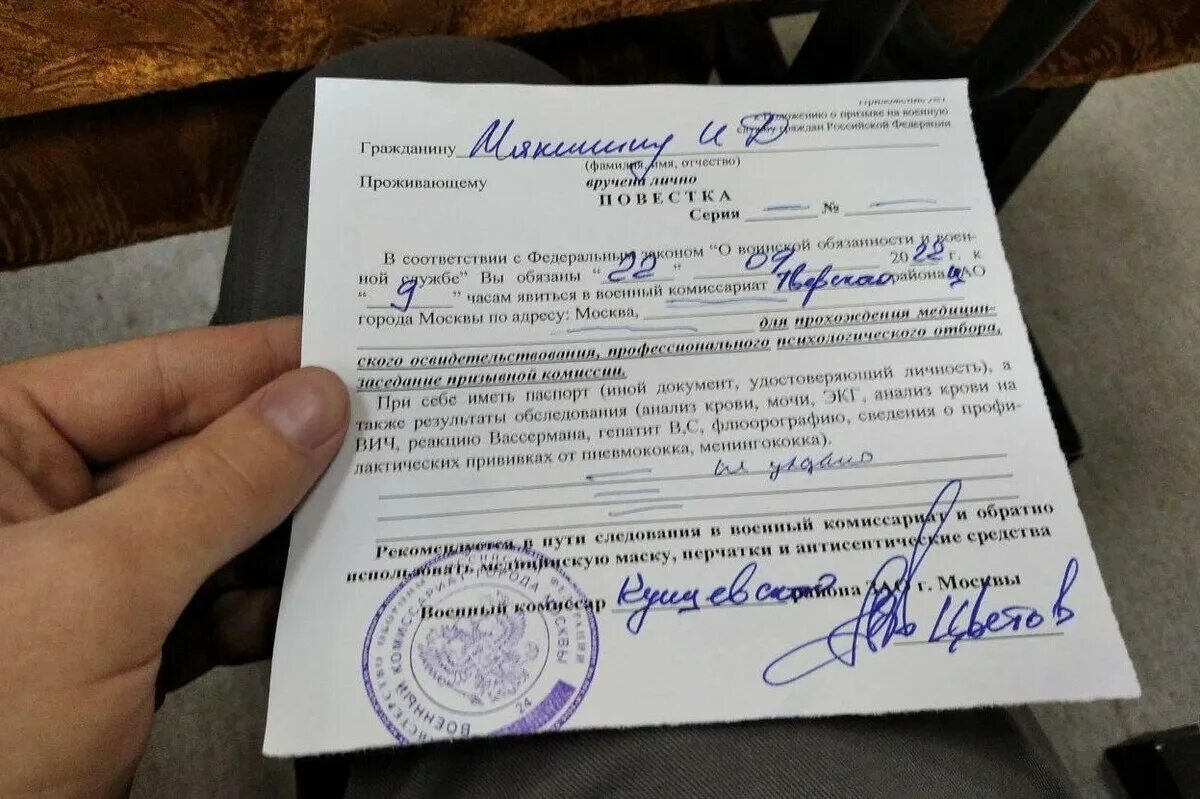 к Положению о призыве на военную
службу граждан Российской Федерации
Гражданину Мякишину И Д
(фамилия, имя, отчество)
Проживающему вручена лично
ПОВЕСТКА
Серия № 
В соответствии с Федеральным законом "О воинской обязанности и воен-
ной службе" Вы обязаны "22" 09 2022 г. к
"9" часам явиться в военный комиссариат Тверской района ЦАО
города Москвы по адресу: Москва,
для прохождения медицин-
ского освидетельствования, профессионального психологического отбора,
заседание призывной комиссии.
При себе иметь паспорт (иной документ, удостоверяющий личность), а
также результаты обследования (анализ крови, мочи, ЭКГ, анализ крови на
ВИЧ, реакцию Вассермана, гепатит В,С, флюорографию, сведения о профи-
лактических прививках от пневмококка, менингококка).
Рекомендуется в пути следования в военный комиссариат и обратно
использовать медицинскую маску, перчатки и антисептические средства
Военный комиссар района ЗАО г. Москвы
Цветов
ВОЕННЫЙ КОМИССАРИАТ ГОРОДА МОСКВЫ
24